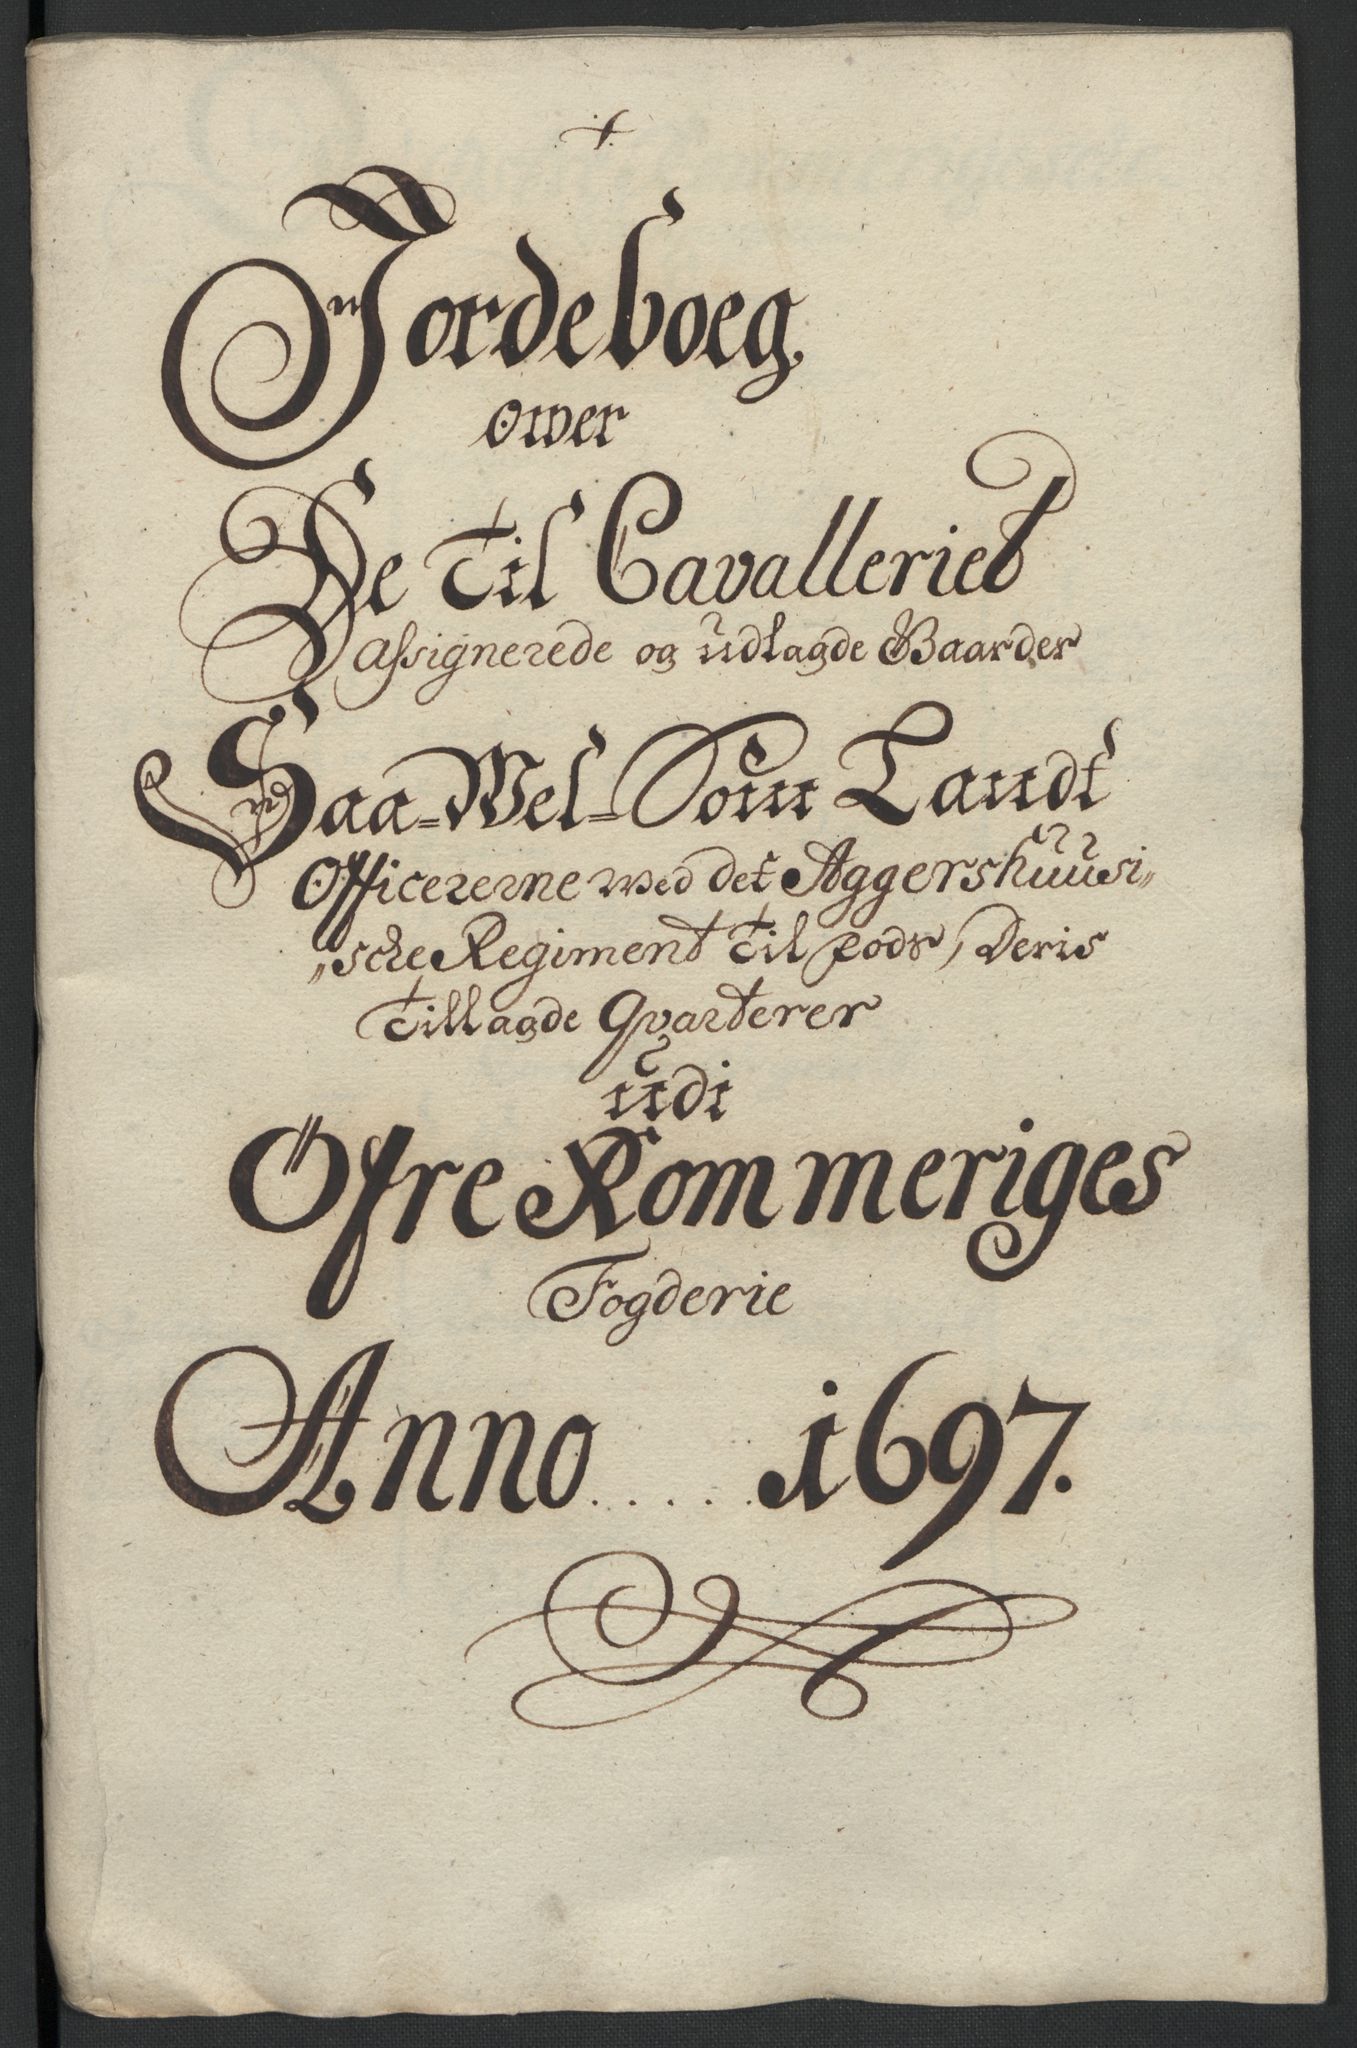 Jordeboeg.
ower
De til Cavalleriet
assignerede og udlagde Gaarder
Saa-Wel-Som Landt
Officererne wed det Aggershuusi„
„sche Regiment til fods, Deris
tillagde Qvarterer
udi
Øfre Rommeriges
Fogderie
Anno ..... 1697.